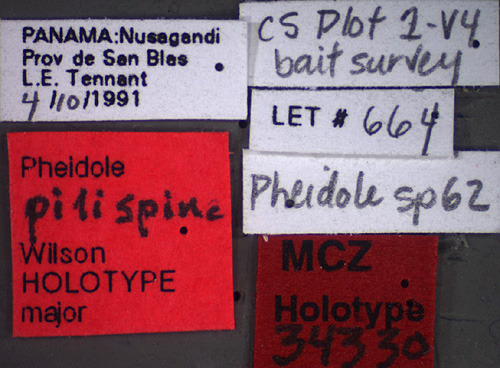 PANAMA:Nusagandi
Prov de San Blas
L.E. Tennant
4/10/1991
CS Plot 1-V4
bait survey
LET # 664
Pheidole sp62
Pheidole
pilispine
Wilson
HOLOTYPE
major
MCZ
Holotype
34330